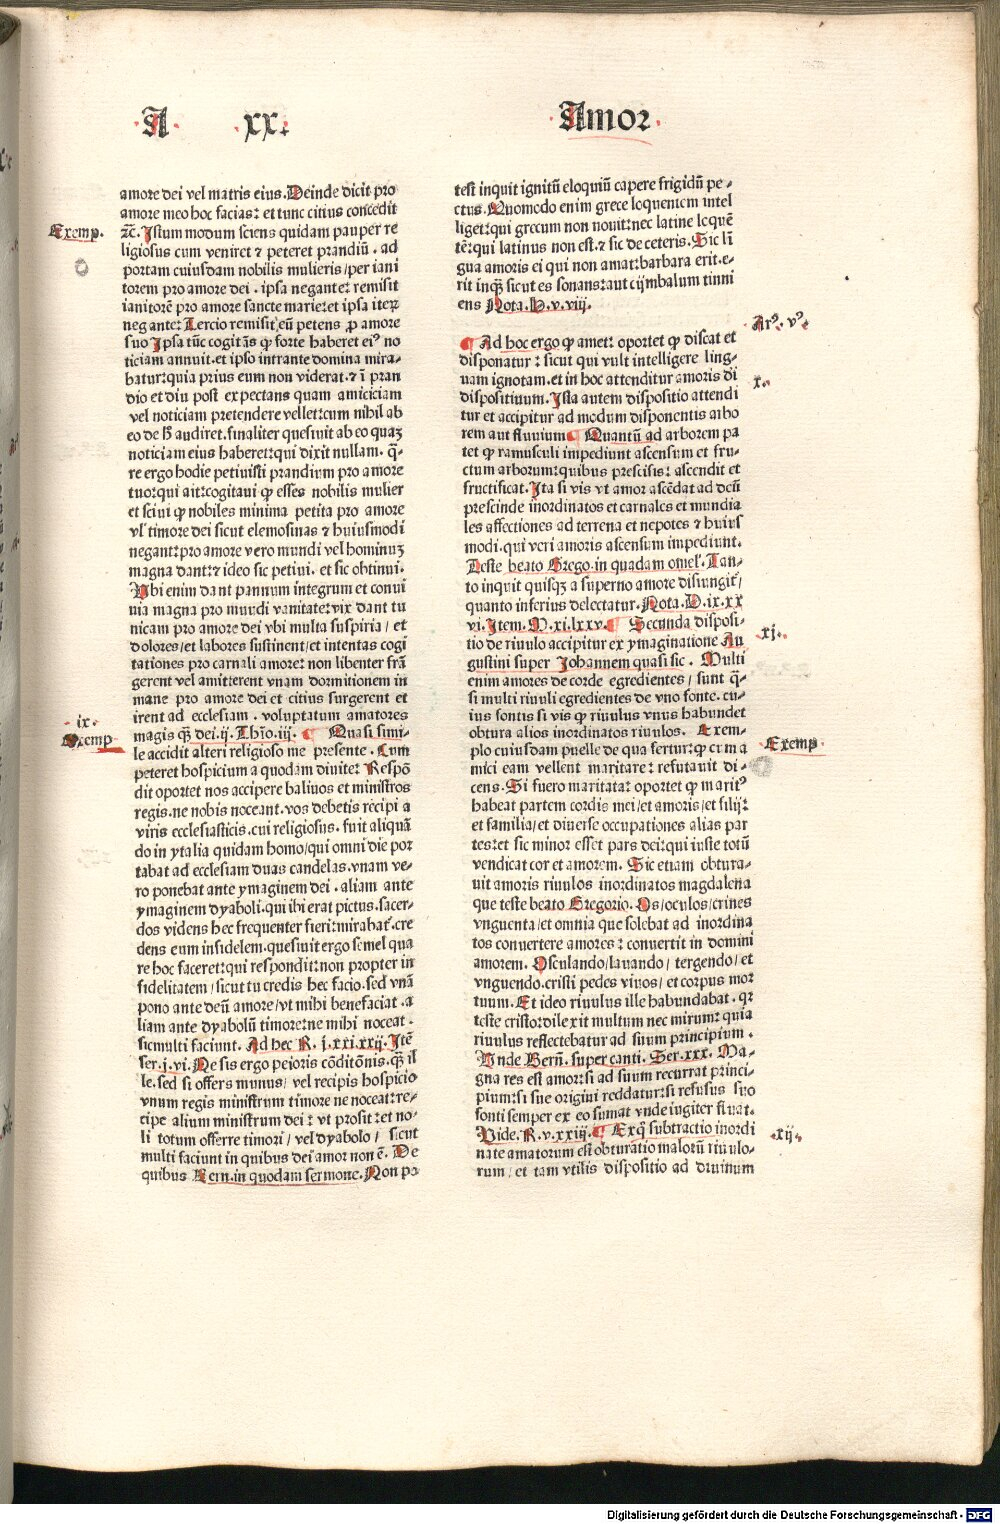 A xx. Amor
amore dei vel matris eius. Deinde dicit pro
amore meo hoc facias: et tunc citius concedit
Exemp.
ꝛc̄. Istum modum sciens quidam pauper re
ligiosus cum veniret ⁊ peteret prandiū . ad
portam cuiusdam nobilis mulieris/per iani
torem pro amore dei . ipsa negante: remisit
ianitorē pro amore sancte marie: et ipsa iteꝝ
negante: Tercio remisit eū petens ꝓ amore
suo Ipsa tūc cogitās ꝙ forte haberet eiꝰ no
ticiam annuit. et ipso intrante domina mira-
batur: quia prius eum non viderat. ⁊ ī pran
dio et diu post expectans quam amiciciam
vel noticiam pretendere vellet: cum nihil ab
eo de h̄ audiret. finaliter quesiuit ab eo quaꝫ
noticiam eius haberet: qui dixit nullam. q̄-
re ergo hodie petiuisti prandium pro amore
tuo: qui ait: cogitaui ꝙ esses nobilis mulier
et sciui ꝙ nobiles minima petita pro amore
vl̓ timore dei sicut elemosinas ⁊ huiusmodi
negant: pro amore vero mundi vel hominuꝫ
magna dant: ⁊ ideo sic petiui. et sic obtinui.
Ubi enim dant pannum integrum et conui
uia magna pro mundi vanitate: vix dant tu
nicam pro amore dei vbi multa suspiria/ et
dolores/et labores sustinent/et intentas cogi
tationes pro carnali amore: non libenter frā
gerent vel amitterent vnam dormitionem in
mane pro amore dei et citius surgerent et
irent ad ecclesiam . voluptatum amatores
ix.
Exemp
magis q̄ꝫ dei. ij. Thīo. iij. ¶ Quasi simi-
le accidit alteri religioso me presente . Cum
peteret hospicium a quodam diuite: Respō
dit oportet nos accipere baliuos et ministros
regis. ne nobis noceant. vos debetis recipi a
viris ecclesiasticis. cui religiosus. fuit aliquā
do in ytalia quidam homo/qui omni die por
tabat ad ecclesiam duas candelas. vnam ve-
ro ponebat ante ymaginem dei . aliam ante
ymaginem dyaboli. qui ibi erat pictus. sacer-
dos videns hec frequenter fieri: mirabat᷑. cre
dens eum infidelem. quesiuit ergo semel qua
re hoc faceret: qui respondit: non propter in
fidelitatem/sicut tu credis hec facio. sed vnā
pono ante deū amore/vt mihi benefaciat . a
liam ante dyabolū timore: ne mihi noceat .
sic multi faciunt. Ad hec R. j. xxi. xxij. Itē
ser. j. vi. Ne sis ergo peioris cōditōnis. q̄ꝫ il
le. sed si offers munus/ vel recipis hospicio
vnum regis ministrum timore ne noceat: re-
cipe alium ministrum dei : vt prosit: et no-
li totum offerre timori/ vel dyabolo/ sicut
multi faciunt in quibus dei amor non ē. De
quibus Bern. in quodam sermone. Non po
test inquit ignitū eloquiū capere frigidū pe-
ctus. Quomodo enim grece loquentem intel
liget: qui grecum non nouit: nec latine loquē
tē: qui latinus non est. ⁊ sic de ceteris. Sic li
gua amoris ei qui non amat: barbara erit. e-
rit inqꝫ sicut es sonans: aut cymbalum tinni
ens Nota. H. v. viij.
Arꝰ. vꝰ.
¶ Ad hoc ergo ꝙ amet: oportet ꝙ discat et
disponatur : sicut qui vult intelligere ling-
uam ignotam. et in hoc attenditur amoris di
x.
dispositiuum. Ista autem dispositio attendi
tur et accipitur ad modum disponentis arbo
rem aut fluuium ¶ Quantū ad arborem pa
tet ꝙ ramusculi impediunt ascensum et fru-
ctum arborum: quibus prescisis: ascendit et
fructificat. Ita si vis vt amor ascēdat ad deū
prescinde inordinatos et carnales et mundia
les affectiones ad terrena et nepotes ⁊ huius
modi. qui veri amoris ascensum impediunt.
Teste beato Grego. in quadam omel̓. Tan-
to inquit quisqꝫ a superno amore disiungit᷑/
quanto inferius delectatur. Nota. D. ix. xx
vi. Item. M. xi. lxxv. ¶ Secunda disposi-
xi.
tio de riuulo accipitur ex ymaginatione Au
gustini super Johannem quasi sic . Multi
enim amores de corde egredientes/ sunt q̄-
si multi riuuli egredientes de vno fonte. cu-
ius fontis si vis ꝙ riuulus vnus habundet
obtura alios inordinatos riuulos. Exem-
Exemp.
plo cuiusdam puelle de qua fertur: ꝙ cum a
mici eam vellent maritare: refutauit di-
cens. Si fuero maritata: oportet ꝙ maritꝰ
habeat partem cordis mei/et amoris/et filij:
et familia/et diuerse occupationes alias par
tes: et sic minor esset pars dei: qui iuste totū
vendicat cor et amorem. Sic etiam obtura-
uit amoris riuulos inordinatos magdalena
que teste beato Gregorio. Os/oculos/crines
vnguenta/et omnia que solebat ad inordina
tos conuertere amores : conuertit in domini
amorem. Osculando/lauando/ tergendo/et
vnguendo. cristi pedes viuos/ et corpus mor
tuum. Et ideo riuulus ille habundabat. qꝛ
teste cristo: dilexit multum nec mirum: quia
riuulus reflectebatur ad suum principium .
Unde Bern̄. super canti. Ser. xxx. Ma-
gna res est amor: si ad suum recurrat princi-
pium: si sue origini reddatur: si refusus suo
fonti semper ex eo sumat vnde iugiter fluat.
xij.
Vide. R. v. xxiij. ¶ Exqͥ subtractio inordi
nate amatorum est obturatio malorū riuulo-
rum/ et tam vtilis dispositio ad diuinum
Digitalisierung gefördert durch die Deutsche Forschungsgemeinschaft - DFG